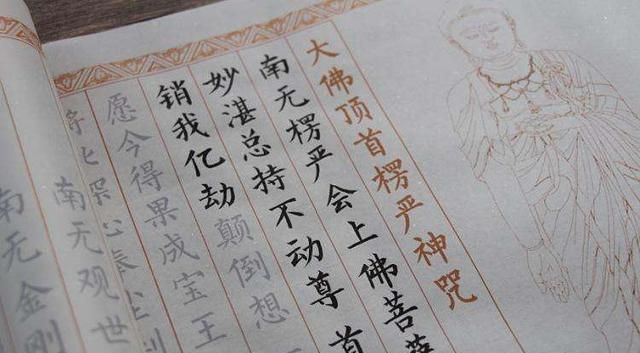 大佛顶首楞严神咒
南无楞严会上佛菩萨
妙湛总持不动尊 首
销我亿劫颠倒想
愿今得果成宝王
深心奉尘刹
南无观世
南无金刚